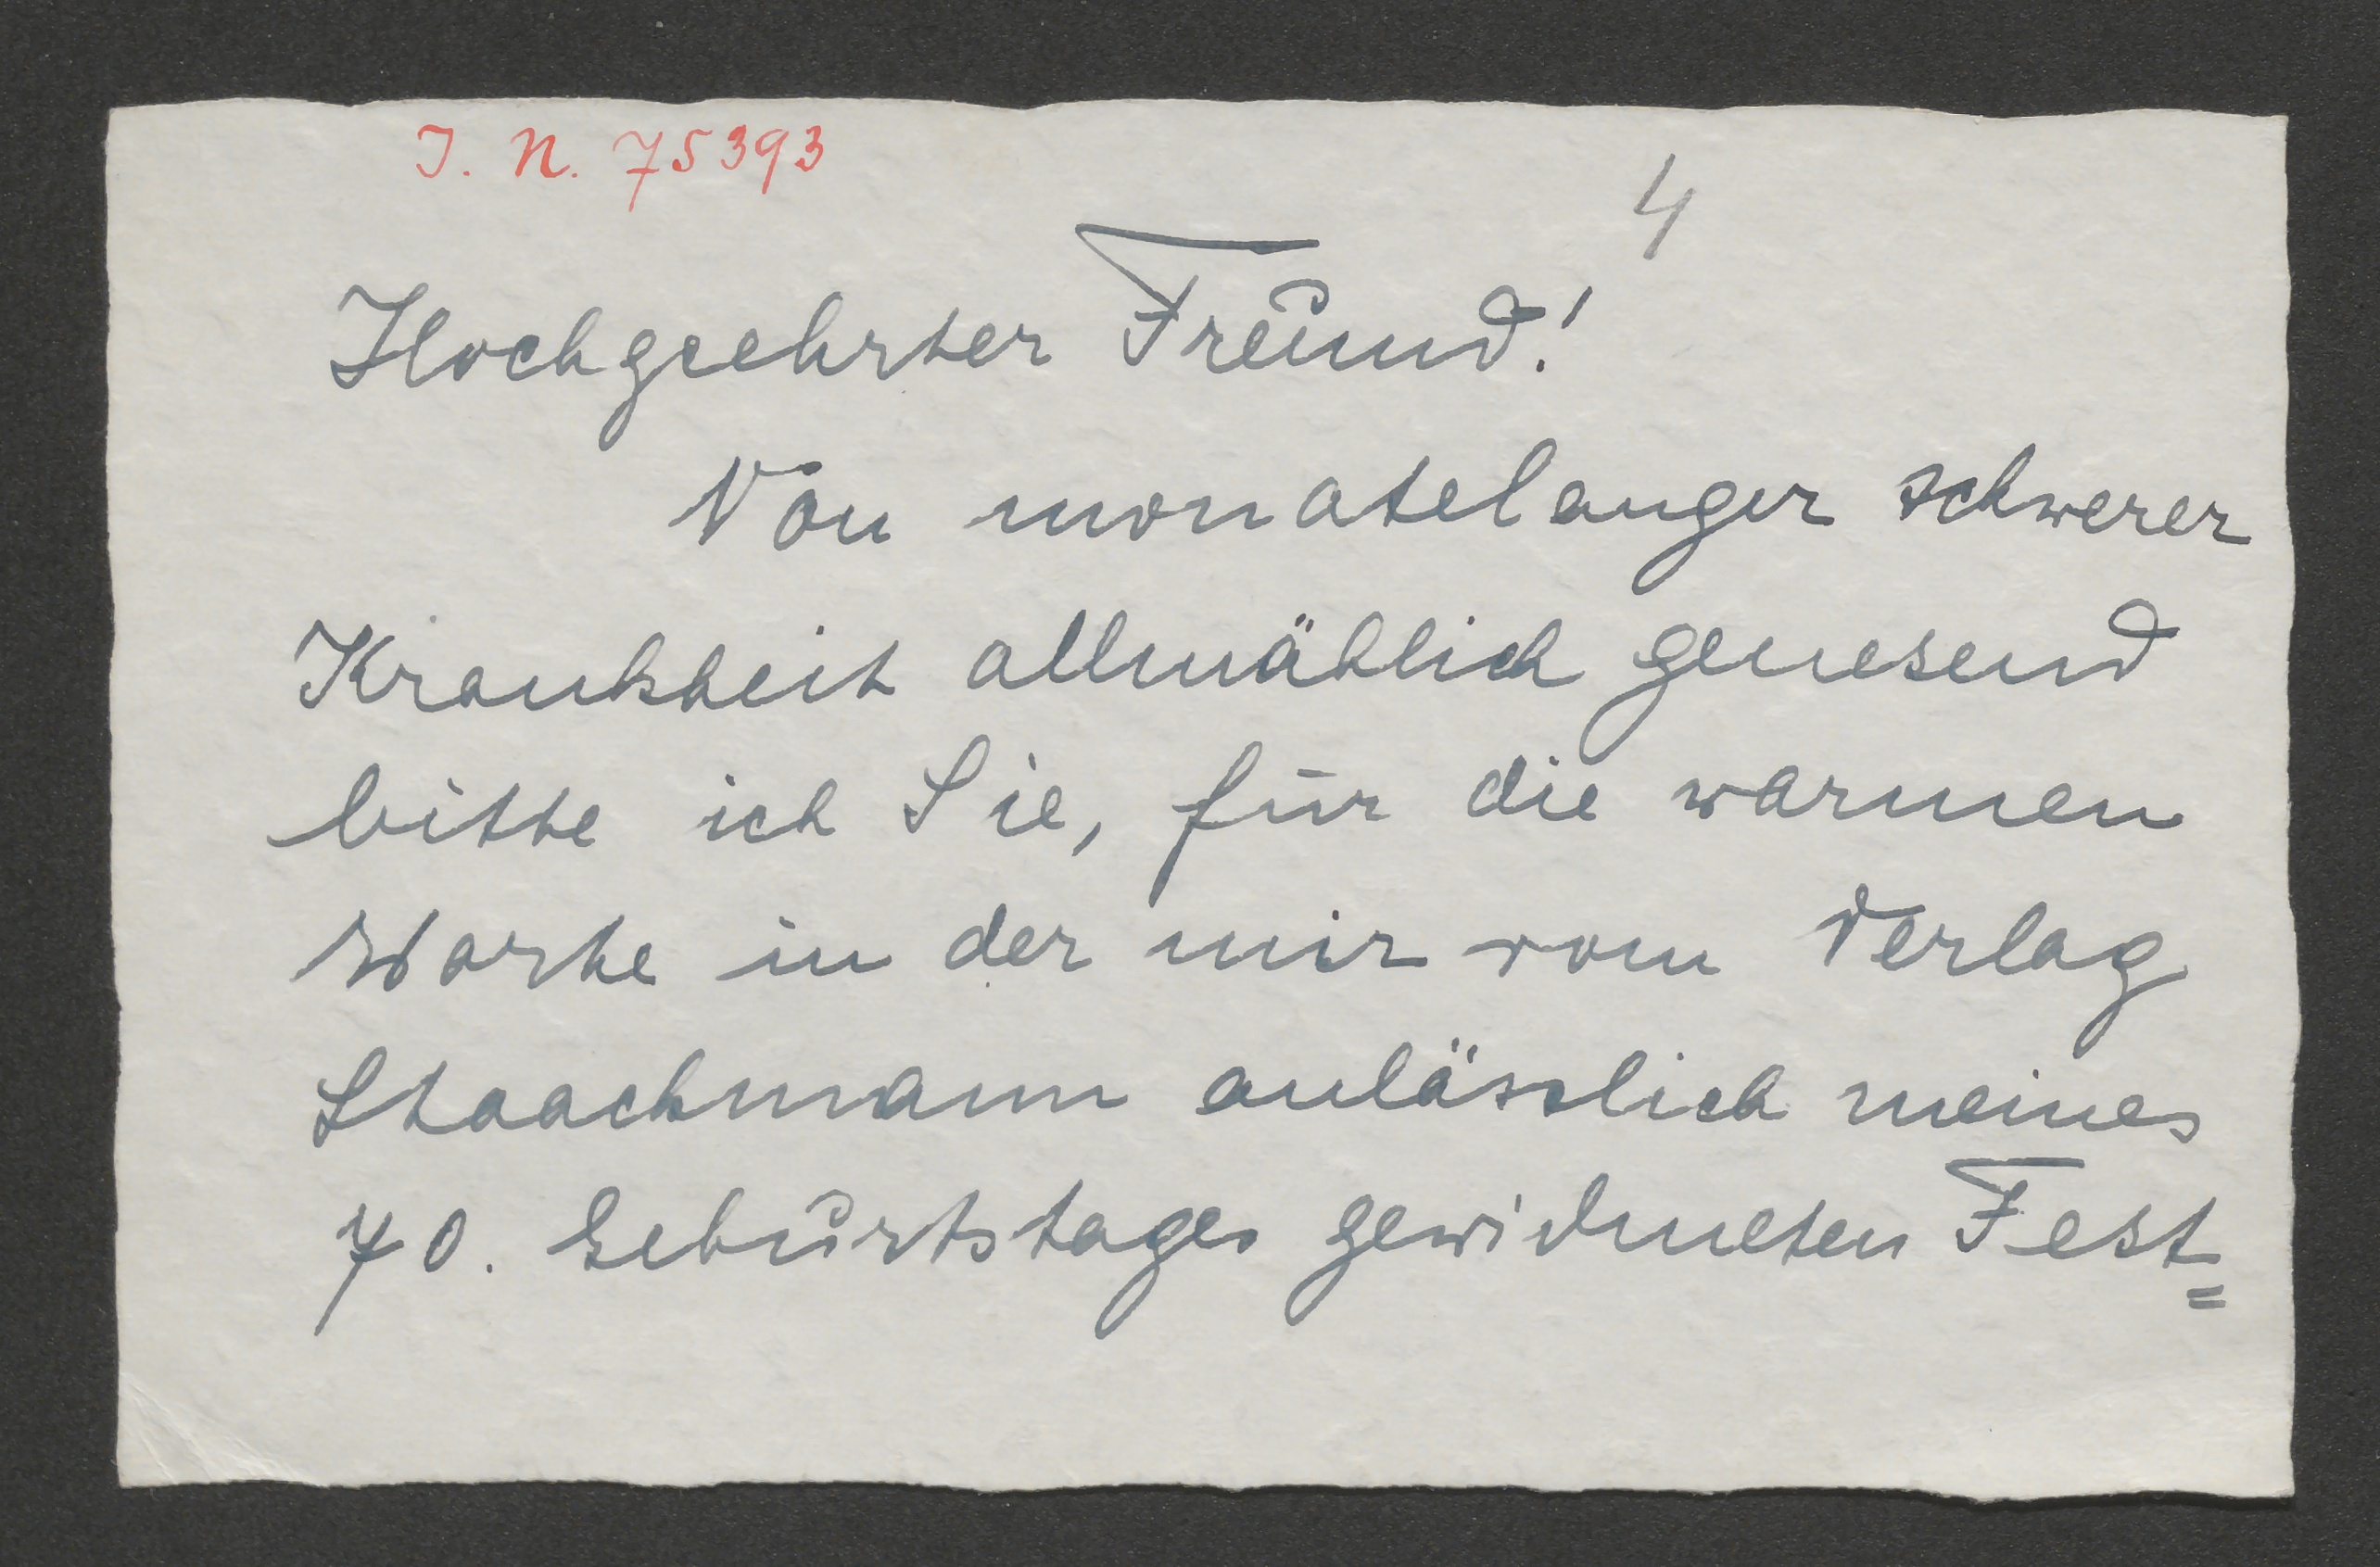 J. N. 75393
4
Hochgeehrter Freund!
Von monatelanger schwerer
Krankheit allmählich genesend
bitte ich Sie, für die warmen
Worte in der mir vom Verlag
Staackmann anlässlich meines
70. Geburtstages gewidmeten Fest=